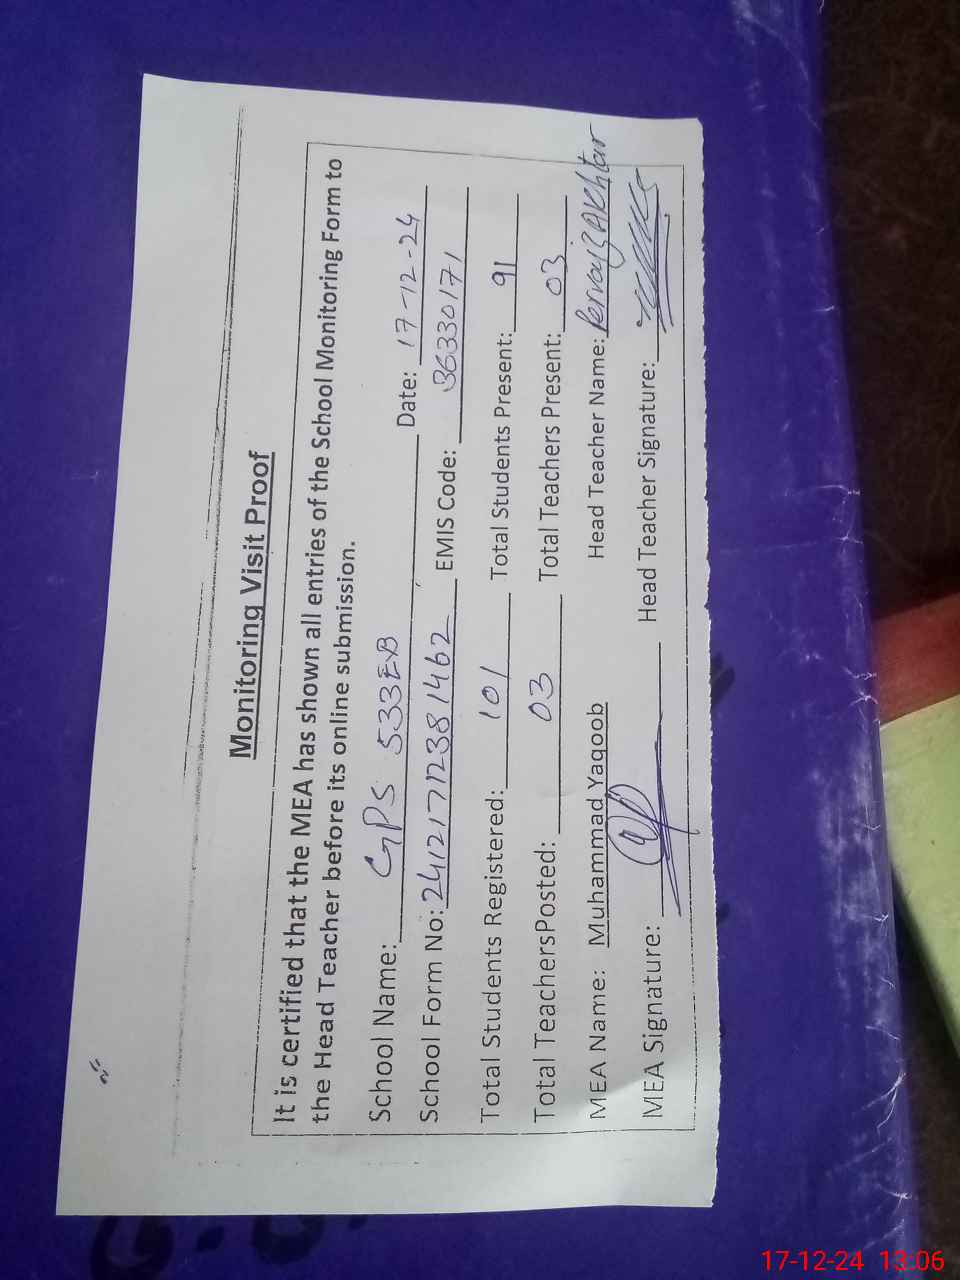 Monitoring Visit Proof
It is certified that the MEA has shown all entries of the School Monitoring Form to
the Head Teacher before its online submission.
School Name: GPS 533EB Date: 17-12-24
School Form No: 241217171238 1462 EMIS Code: 36330171
Total Students Registered: 101 Total Students Present: 91
Total TeachersPosted: 03 Total Teachers Present: 03
MEA Name: Muhammad Yaqoob Head Teacher Name: Pervaiz Akhtar
MEA Signature: Head Teacher Signature:
17-12-24 13:06